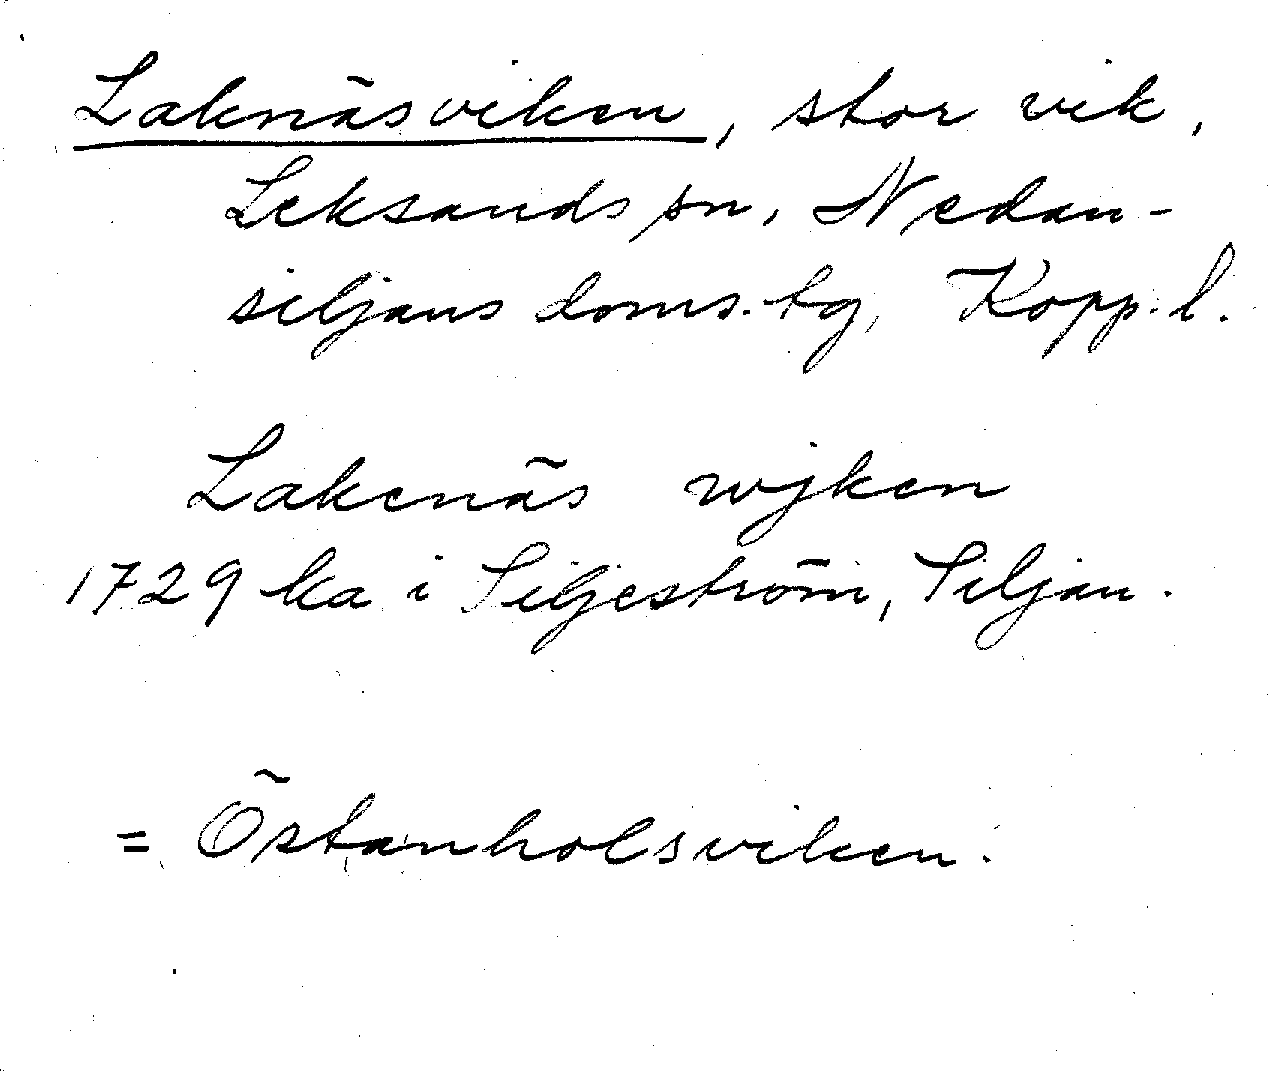 Laknäsviken, stor vik,
Leksands sn, Nedan-
siljans doms. tg, Kopp. l.
Lakenäs wjken
1729 ka i Siljeström, Siljan.
= Östanholsviken.